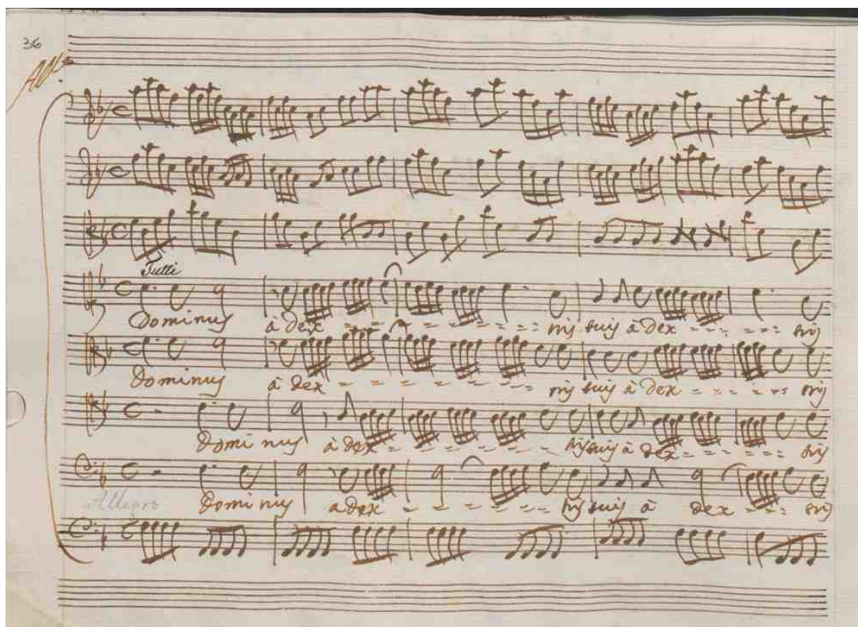 36
All.º
Tutti
Dominus à dex - - - - - - - - - tris tuis à dex - - - - - - - tris
Dominus à dex - - - - - - - - - tris tuis à dex - - - - - - - tris
Dominus à dex - - - - - - - - - tris tuis à dex - - - - - tris
Dominus a dex - - - - - - - - - tris tuis à dex - - - - tris
Allegro